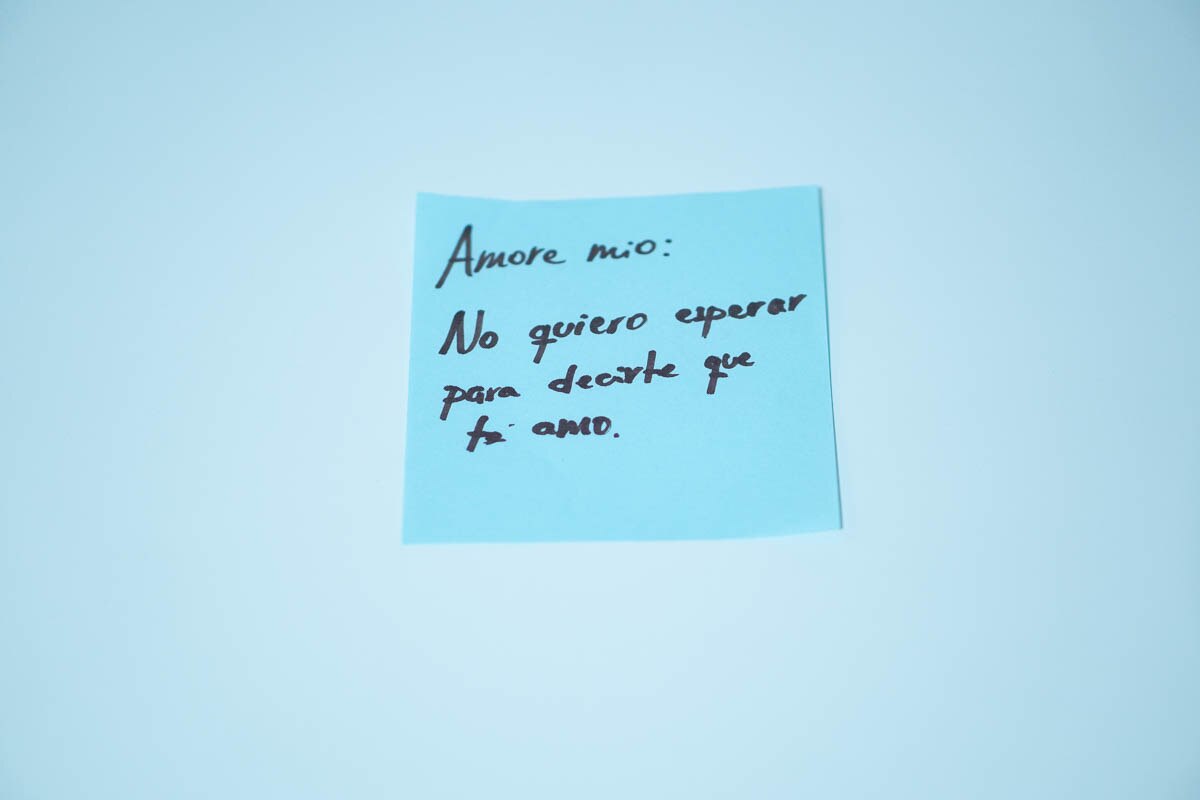 Amore mio:
No quiero esperar
para decirte que
te amo.